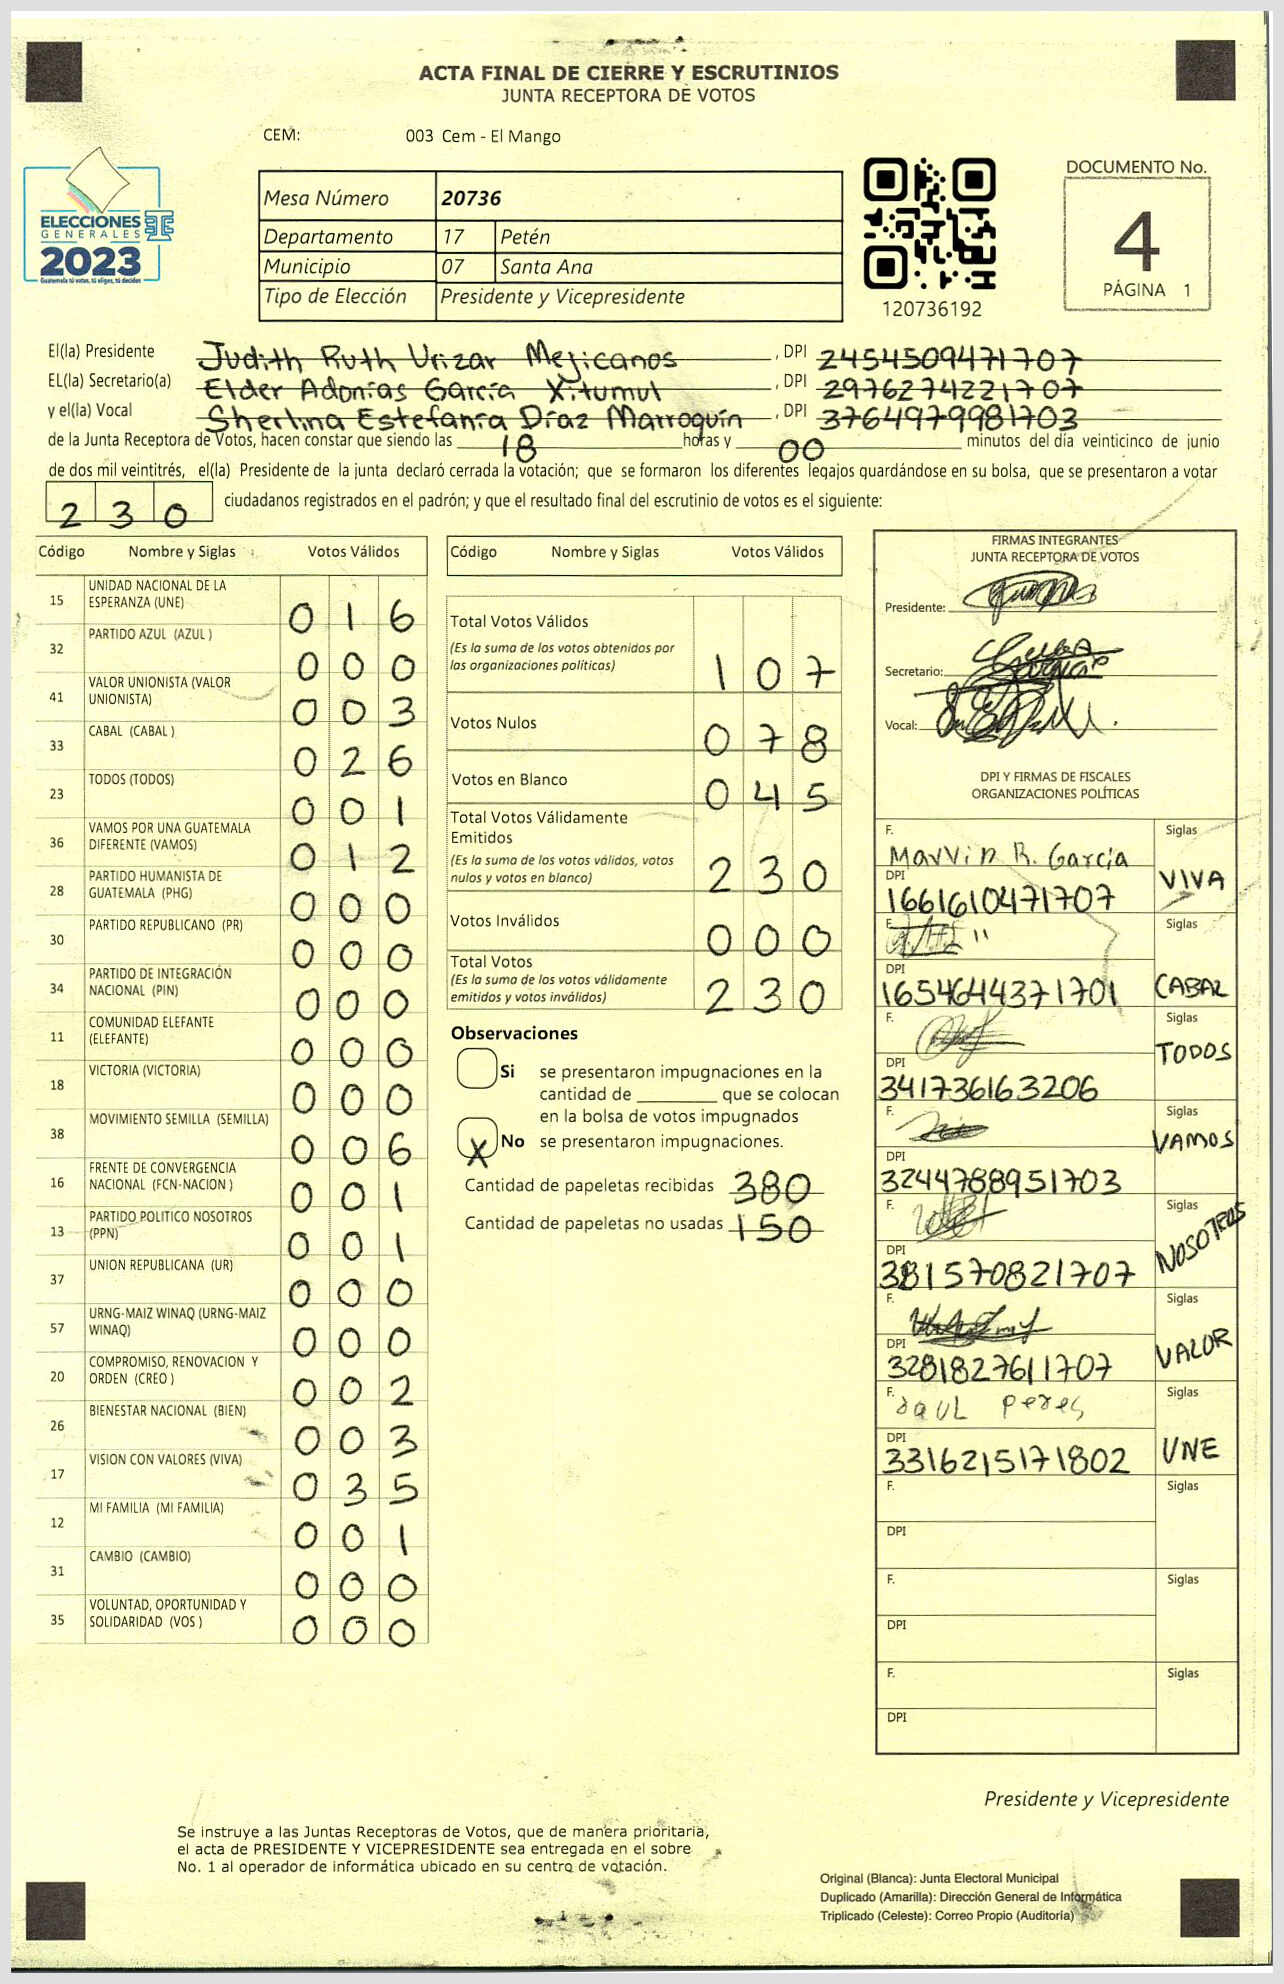 ACTA FINAL DE CIERRE Y ESCRUTINIOS
JUNTA RECEPTORA DE VOTOS
CEM: 003 Cem - El Mango
ELECCIONES
GENERALES
2023
Guatemala tú votas, tú eliges, tú decides
Mesa Número 20736
Departamento 17 Petén
Municipio 07 Santa Ana
Tipo de Elección Presidente y Vicepresidente
120736192
DOCUMENTO No.
4
PÁGINA 1
El(la) Presidente Judith Ruth Urizar Mejicanos , DPI 2454509471707
EL(la) Secretario(a) Elder Adonías García Xitumul , DPI 2976274221707
y el(la) Vocal Sherlina Estefanía Díaz Marroquín , DPI 3764979981703
de la Junta Receptora de Votos, hacen constar que siendo las 18 horas y 00 minutos del día veinticinco de junio
de dos mil veintitrés, el(la) Presidente de la junta declaró cerrada la votación; que se formaron los diferentes legajos guardándose en su bolsa, que se presentaron a votar
230 ciudadanos registrados en el padrón; y que el resultado final del escrutinio de votos es el siguiente:
Código Nombre y Siglas Votos Válidos
15 UNIDAD NACIONAL DE LA
ESPERANZA (UNE) 016
32 PARTIDO AZUL (AZUL ) 000
41 VALOR UNIONISTA (VALOR
UNIONISTA) 003
33 CABAL (CABAL ) 026
23 TODOS (TODOS) 001
36 VAMOS POR UNA GUATEMALA
DIFERENTE (VAMOS) 012
28 PARTIDO HUMANISTA DE
GUATEMALA (PHG) 000
30 PARTIDO REPUBLICANO (PR) 000
34 PARTIDO DE INTEGRACIÓN
NACIONAL (PIN) 000
11 COMUNIDAD ELEFANTE
(ELEFANTE) 000
18 VICTORIA (VICTORIA) 000
38 MOVIMIENTO SEMILLA (SEMILLA) 006
16 FRENTE DE CONVERGENCIA
NACIONAL (FCN-NACION ) 001
13 PARTIDO POLITICO NOSOTROS
(PPN) 001
37 UNION REPUBLICANA (UR) 000
57 URNG-MAIZ WINAQ (URNG-MAIZ
WINAQ) 000
20 COMPROMISO, RENOVACION Y
ORDEN (CREO ) 002
26 BIENESTAR NACIONAL (BIEN) 003
17 VISION CON VALORES (VIVA) 035
12 MI FAMILIA (MI FAMILIA) 001
31 CAMBIO (CAMBIO) 000
35 VOLUNTAD, OPORTUNIDAD Y
SOLIDARIDAD (VOS ) 000
Código Nombre y Siglas Votos Válidos
Total Votos Válidos
(Es la suma de los votos obtenidos por
las organizaciones políticas) 107
Votos Nulos 078
Votos en Blanco 045
Total Votos Válidamente
Emitidos
(Es la suma de los votos válidos, votos
nulos y votos en blanco) 230
Votos Inválidos 000
Total Votos
(Es la suma de los votos válidamente
emitidos y votos inválidos) 230
Observaciones
Si se presentaron impugnaciones en la
cantidad de ________ que se colocan
en la bolsa de votos impugnados
X No se presentaron impugnaciones.
Cantidad de papeletas recibidas 380
Cantidad de papeletas no usadas 150
FIRMAS INTEGRANTES
JUNTA RECEPTORA DE VOTOS
Presidente:
Secretario:
Vocal:
DPI Y FIRMAS DE FISCALES
ORGANIZACIONES POLÍTICAS
F. Marvin R. García Siglas
DPI 1661610471707 VIVA
F. Siglas
DPI 1654644371701 CABAL
F. Siglas
DPI 341736163206 TODOS
F. Siglas
DPI 3244788951703 VAMOS
F. Siglas
DPI 381570821707 NOSOTROS
F. Siglas
DPI 3281827611707 VALOR
F. saul peres Siglas
DPI 3316215171802 UNE
F. Siglas
DPI
F. Siglas
DPI
F. Siglas
DPI
Presidente y Vicepresidente
Se instruye a las Juntas Receptoras de Votos, que de manera prioritaria,
el acta de PRESIDENTE Y VICEPRESIDENTE sea entregada en el sobre
No. 1 al operador de informática ubicado en su centro de votación.
Original (Blanca): Junta Electoral Municipal
Duplicado (Amarilla): Dirección General de Informática
Triplicado (Celeste): Correo Propio (Auditoría)